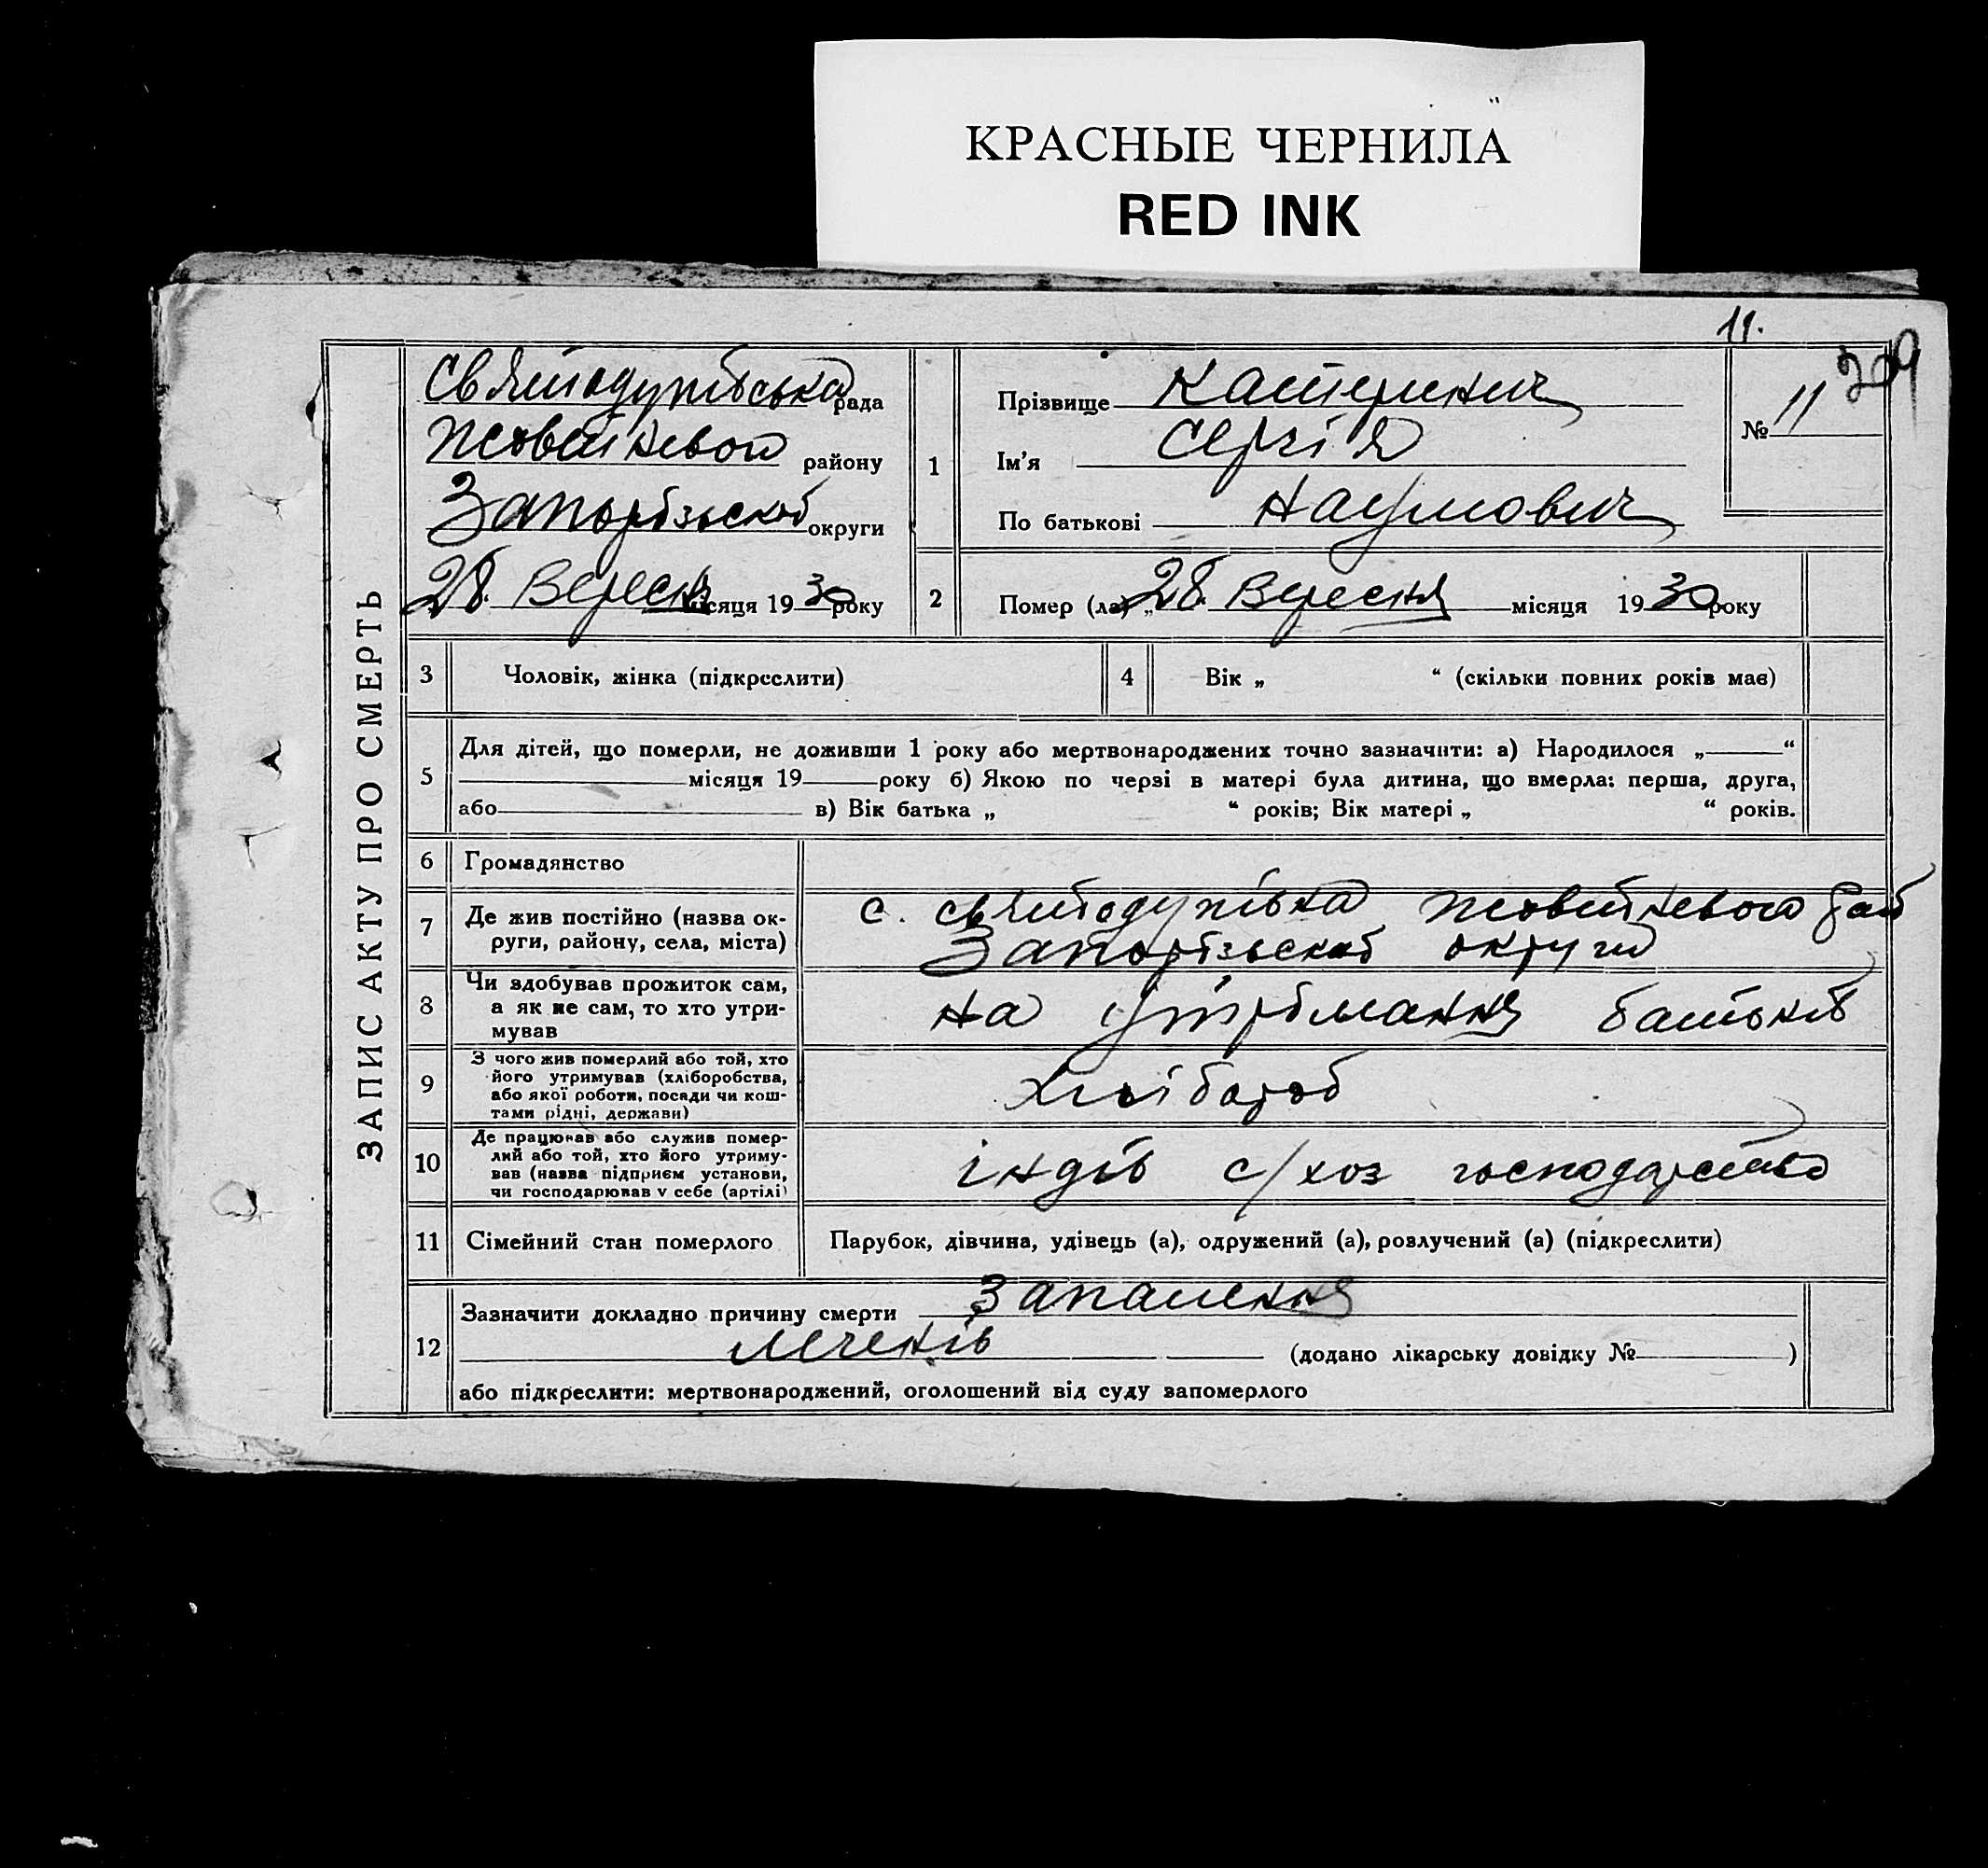 КРАСНЫЕ ЧЕРНИЛА
RED INK
11.
ЗАПИС АКТУ ПРО СМЕРТЬ
Святодухівська рада
Жовтневого району
Запорізької округи
28 Вересня місяця 1930 року
1
Прізвище Катеринич
Ім'я Сергій
По батькові Наумович
№ 11
2
Помер (ла) „28“ Вересня місяця 1930 року
3
Чоловік, жінка (підкреслити)
4
Вік „ “ (скільки повних років має)
5
Для дітей, що померли, не доживши 1 року або мертвонароджених точно зазначити: а) Народилося „ “
місяця 19 року б) Якою по черзі в матері була дитина, що вмерла: перша, друга,
або в) Вік батька „ “ років; Вік матері „ “ років.
6
Громадянство
7
Де жив постійно (назва ок-
руги, району, села, міста)
с. Святодухівка Жовтневого рай
Запорізької округи
8
Чи здобував прожиток сам,
а як не сам, то хто утри-
мував
на утрімання батьків
9
З чого жив померлий або той, хто
його утримував (хліборобства,
або якої роботи, посади чи кош-
тами рідні, держави)
хлібороб
10
Де працював або служив помер-
лий або той, хто його утриму-
вав (назва підприєм установи,
чи господарював у себе (артілі)
індів с/хоз господарство
11
Сімейний стан померлого
Парубок, дівчина, удівець (а), одружений (а), розлучений (а) (підкреслити)
12
Зазначити докладно причину смерти Запалення
легенів (додано лікарську довідку № )
або підкреслити: мертвонароджений, оголошений від суду запомерлого